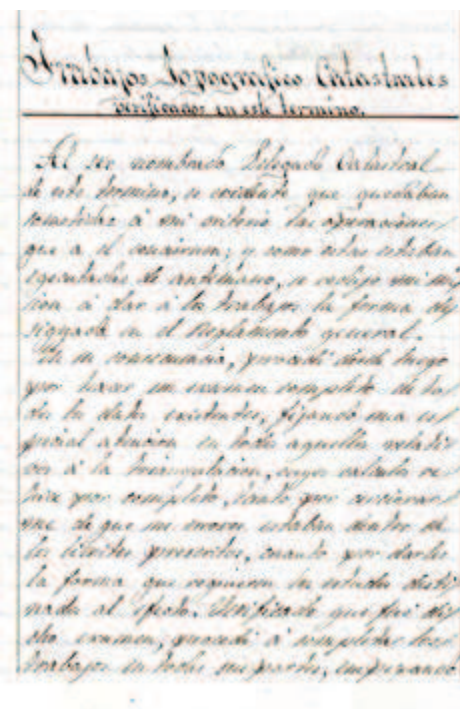 Trabajos Topografico Catastrales
verificados en este termino.
Al ser nombrado Delegado Catastral
de este termino, se que quedaban
sometidas á mi criterio las operaciones
que a el y como estas estaban
ejecutadas de antemano, se mi mi
sion á dar á los trabajos la forma de
signada en el Reglamento general.
En su consecuencia, procedí desde luego
por hacer un examen completo de to
dos los datos existentes, fijando una es
pecial atencion en todos aquellos relati
vos á la triangulacion, cuyo calculo se
hizo por completo, tanto por cerciorar
me de que sus errores estaban dentro de
los límites prescritos, cuanto por darles
la forma que requieren los estados desti
nados al efecto. Verificado que fué di
cho examen, procedí á completar los
trabajos en todas sus partes, empezando